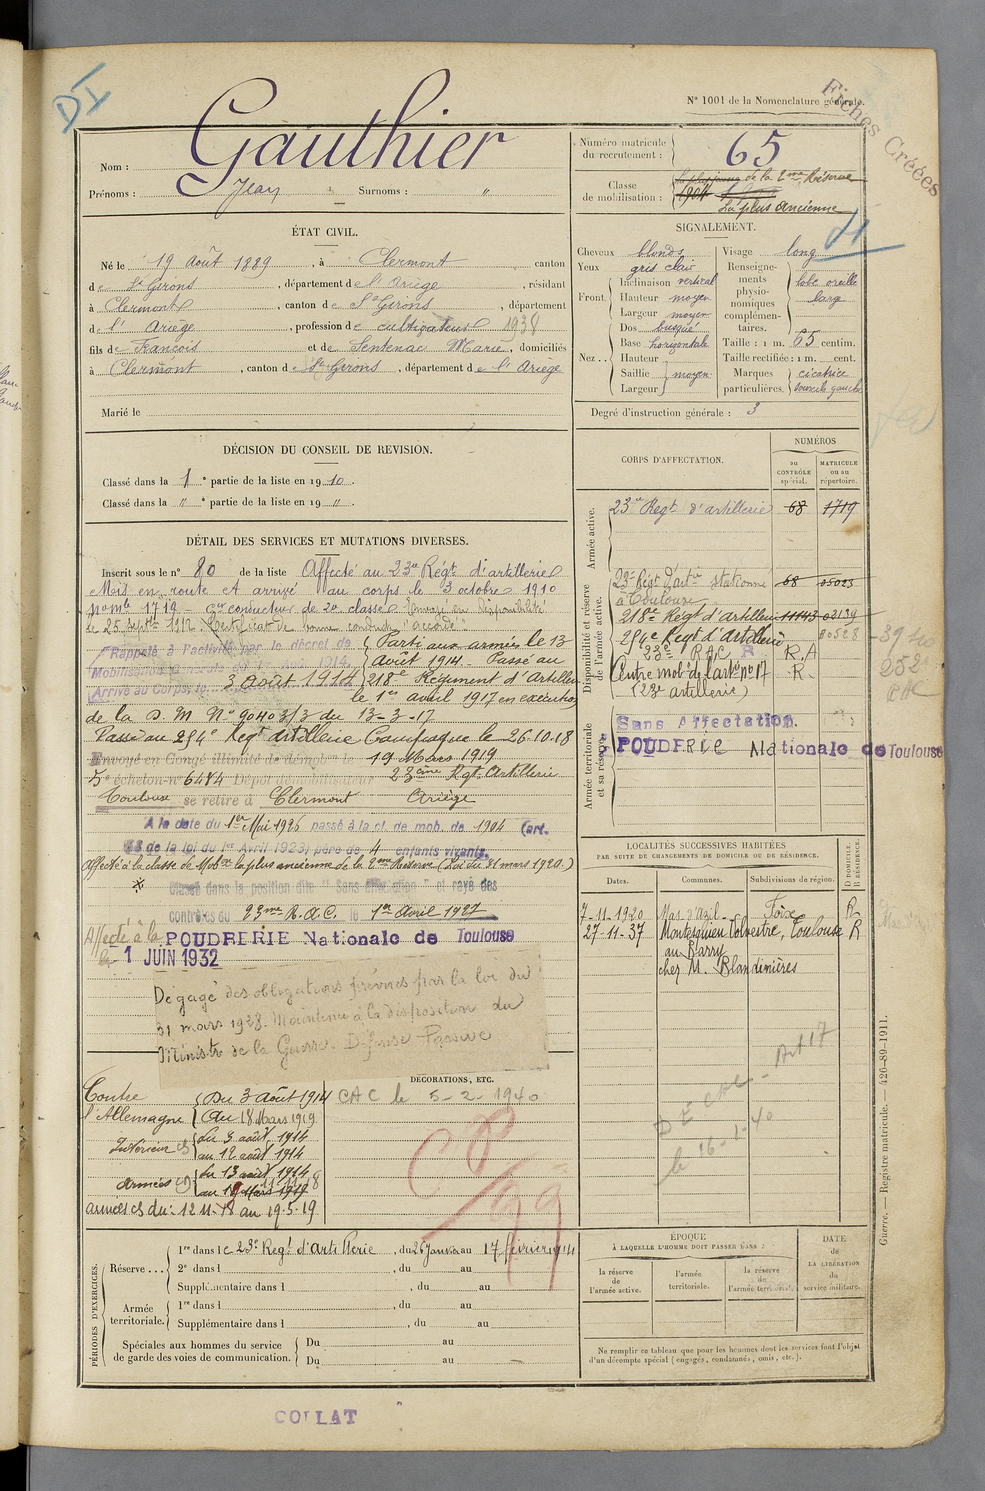 DI
N° 1001 de la Nomenclature générale.
Fiches Créées
Nom : Gauthier
Prénoms : Jean Surnoms : "
Numéro matricule du recrutement : 65
Classe de mobilisation : la plus jeune de la 2me Réserve
1904
La plus ancienne
ÉTAT CIVIL.
Né le 19 Août 1889, à Clermont canton
de St Girons, département de l'Ariège, résidant
à Clermont, canton de St Girons, département
de l'Ariège, profession de cultivateur 1938
fils de François et de Sentenac Marie, domiciliés
à Clermont, canton de St Girons, département de l'Ariège
Marié le
SIGNALEMENT.
Cheveux blonds
Yeux gris clair
Front. Inclinaison vertical
Hauteur moyen
Largeur moyen
Nez .. Dos busqué
Base horizontale
Hauteur
Saillie moyen
Largeur
Visage long
Renseignements physionomiques complémentaires. lobe oreille large
Taille : 1 m. 65 centim.
Taille rectifiée : 1 m. cent.
Marques particulières. cicatrice sourcils gauche
Degré d'instruction générale : 3
DÉCISION DU CONSEIL DE REVISION.
Classé dans la 1e partie de la liste en 1910.
Classé dans la " e partie de la liste en 19 ".
CORPS D'AFFECTATION.
NUMÉROS
au CONTRÔLE spécial.
MATRICULE ou au répertoire.
Armée active.
23e Regt d'artillerie 68 1719
Disponibilité et réserve de l'armée active.
23e Régt d'artie stationné 68 05025
à Toulouse
218e Regt d'artillerie 11143 02139
254e Regt d'artillerie 80528
23e RAC R R.A
Centre mob. de l'artie n° 17 R.
(23e artillerie)
Armée territoriale et sa réserve.
Sans Affectation.
POUDRERIE Nationale de Toulouse
DÉTAIL DES SERVICES ET MUTATIONS DIVERSES.
Inscrit sous le n° 80 de la liste Affecté au 23e Régt d'artillerie
Mis en route et arrivé au corps le 3 octobre 1910
n° mle 1719 - conducteur de 2e classe Envoyé en disponibilité
le 25 septbre 1912. Certificat de bonne conduite "accordé".
Rappelé à l'activité par le décret de
Mobilisation
Arrivé au Corps, le 3 Août 1914
Parti aux armées le 13
août 1914. Passé au
218e Régiment d'Artillerie
le 1er avril 1917 en exécution
de la D. M. N° 90403/3 du 13-3-17
Passé au 254e Regt artillerie Campagne le 26.10.18
Envoyé en Congé illimité de démob. le 19 Mars 1919
5e échelon n° 6484 Dépôt démobilisateur 23ème Rgt Artillerie
Toulouse se retire à Clermont Ariège
A la date du 1er Mai 1926 passé à la cl. de mob. de 1904 (art.
58 de la loi du 1er Avril 1923) père de 4 enfants vivants.
affecté à la classe de Mobon la plus ancienne de la 2eme Réserve (Loi du 31 mars 1920.)
Classé dans la position dite "Sans affectation" et rayé des
contrôles du 23me R.A.C. le 1er Avril 1927
Affecté à la POUDRERIE Nationale de Toulouse
le 1 JUIN 1932
Dégagé des obligations prévues par la loi du
31 mars 1928. Maintenu à la disposition du
Ministre de la Guerre. Défense Passive
LOCALITÉS SUCCESSIVES HABITÉES
PAR SUITE DE CHANGEMENTS DE DOMICILE OU DE RÉSIDENCE.
Dates. Communes. Subdivisions de région. D DOMICILE. R RÉSIDENCE.
7-11-1920 Mas-d'Azil Foix R
27-11-37 Montesquieu Volvestre, Toulouse R
au Barry
chez M. Blandinières
DÉCORATIONS, ETC.
CAC le 5-2-1940
Contre l'Allemagne Du 3 août 1914
Au 18 Mars 1919
Intérieur du 3 août 1914
au 12 août 1914
Armées du 13 août 1914
au 19 Mars 1919
armées cs du : 12 11-18 au 19-5-19
le 16-1-40
PÉRIODES D'EXERCICES.
Réserve ... 1re dans le 23e Regt d'Artillerie, du 26 Janvier au 17 février 1914
2e dans l , du au
Supplémentaire dans l , du au
Armée territoriale. 1re dans l , du au
Supplémentaire dans l , du au
Spéciales aux hommes du service de garde des voies de communication. Du au
Du au
ÉPOQUE
À LAQUELLE L'HOMME DOIT PASSER DANS :
la réserve de l'armée active.
l'armée territoriale.
la réserve de l'armée territoriale.
DATE de LA LIBÉRATION du service militaire.
Ne remplir ce tableau que pour les hommes dont les services font l'objet
d'un décompte spécial (engagés, condamnés, omis, etc.).
Guerre. — Registre matricule. — 426-89-1911.
COLLAT